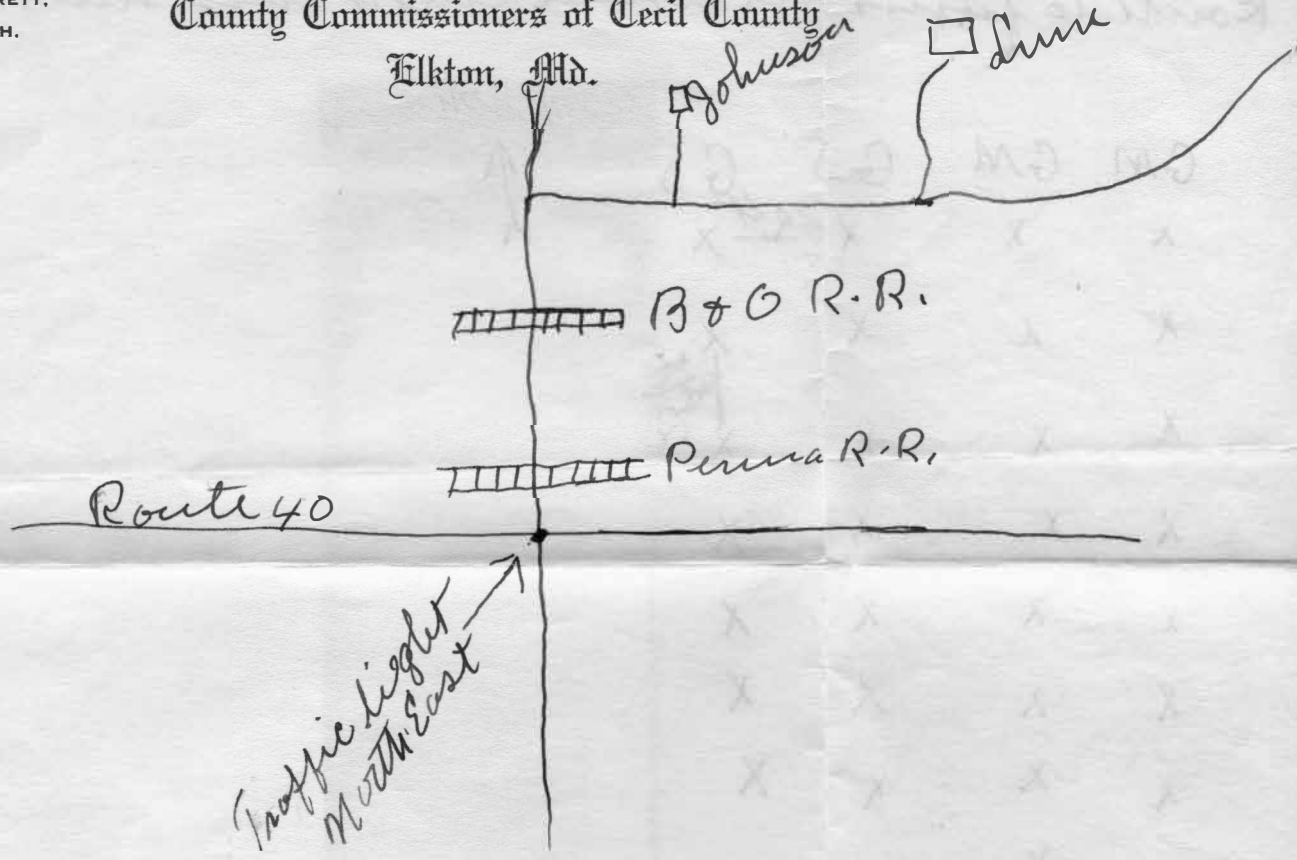 County Commissioners of Cecil County
Elkton, Md.
Johnson
B & O R.R.
Penna R.R.
Route 40
Traffic light
North East